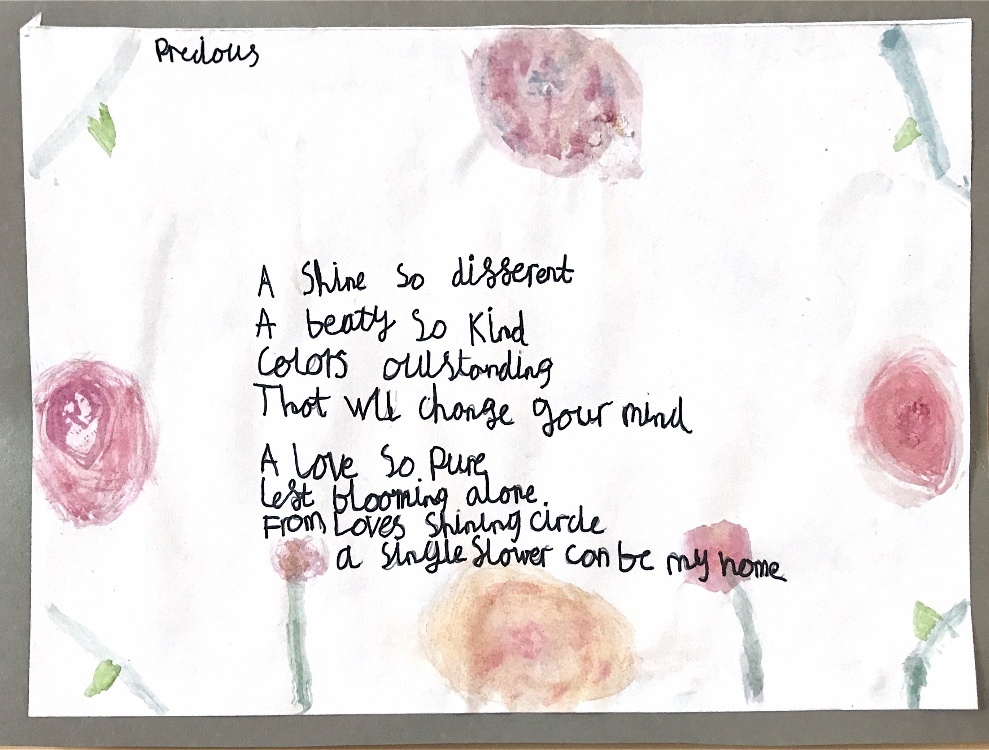 Precious
A Shine So different
A beaty So Kind
Colors outstanding
That will change your mind
A Love So Pure
left blooming alone.
From Loves Shining circle
a single flower can be my home